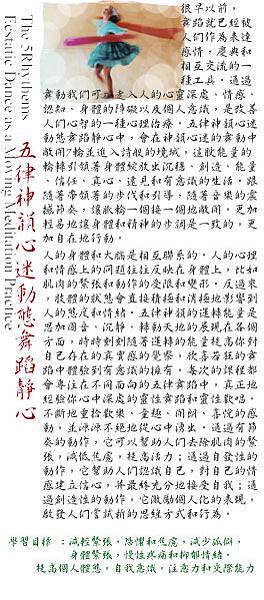 The 5Rhythems
Ecstatic Dance as a Moving Meditation Practice
五律神韻心迷動態舞蹈靜心
很早以前，
舞蹈就已經被
人們作為表達
感情，慶典和
相互交流的一
種工具。通過
舞動我們可以走入人的心靈深處、情感、
認知、身體的障礙以及個人意識，是改善
人們心智的一種心理治療。五律神韻心迷
動態舞蹈靜心中，會在神韻心迷的舞動中
敞開7輪並進入詩般的境域，這股能量的
輪轉引領著身體綻放出沉穩、創造、能量
、信任、真心、遠見和有意識的生活。跟
隨著帶領著的步伐和引導，隨著音樂的震
撼節奏，讓脈輪一個接一個地敞開，更加
輕易地讓身體和精神的步調是一致的，更
加自在地行動。
人的身體和大腦是相互聯系的，人的心理
和情感上的問題往往反映在身體上，比如
肌肉的緊張和動作的受限和變形，反過來
，肢體的狀態會直接積極和消極地影響到
人的態度和情緒。五律神韻的運轉能量是
思如圓音、沉靜，轉動天地的展現在各個
方面，時時刻刻隨著運轉的能量提高你對
自己存在的真實感的覺察，欣喜若狂的舞
蹈中體驗到有意識的擁有。每次的課程都
會專注在不同面向的五律舞蹈中，真正地
經驗你心中深處的靈性索和靈性歡唱。
不斷地重拾歡樂、童趣、開朗、喜悅的感
動，並源源不絕地從心中湧出。通過有節
奏的動作，它可以幫助人們去除肌肉的緊
張，減低焦慮，提高活力；通過自發性的
動作，它幫助人們認識自己，對自己的情
感建立信心，并最終充分地接受自我；通
過創造性的動作，它激勵個人化的表現，
啟發人們嘗試新的思維方式和行為。
學習目標 ：減輕緊張，恐懼和焦慮，減少孤獨，
身體緊張，慢性疼痛和抑鬱情緒。
提高個人體態，自我意識，注意力和交際能力